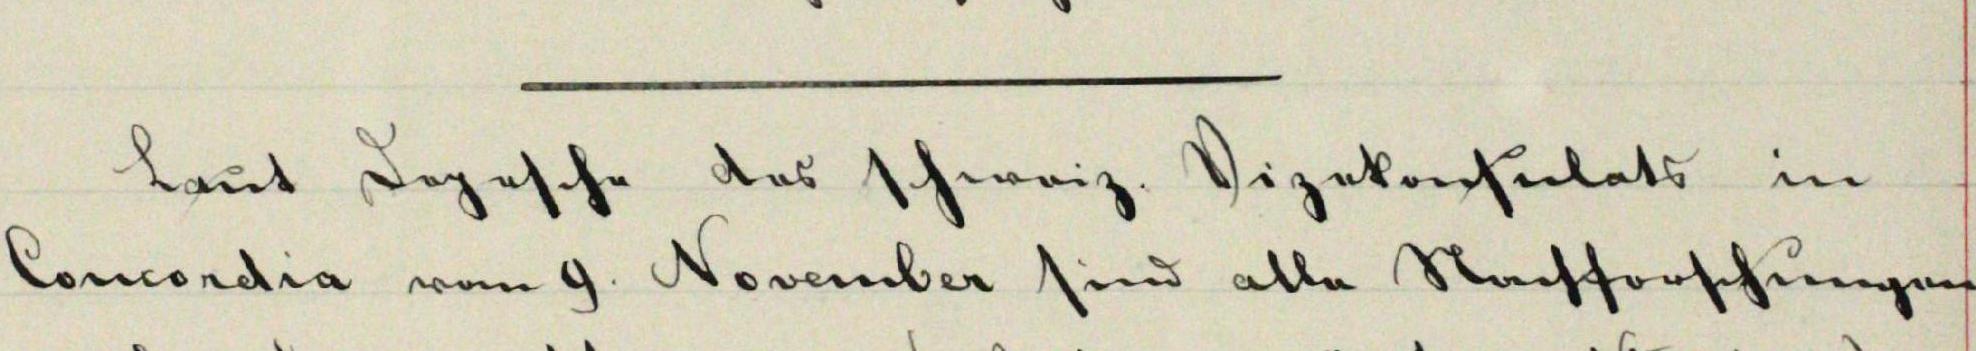 Laut Depesche des schweiz. Vizekonsulats in
Concordia vom 9. November sind alle Nachforschungen